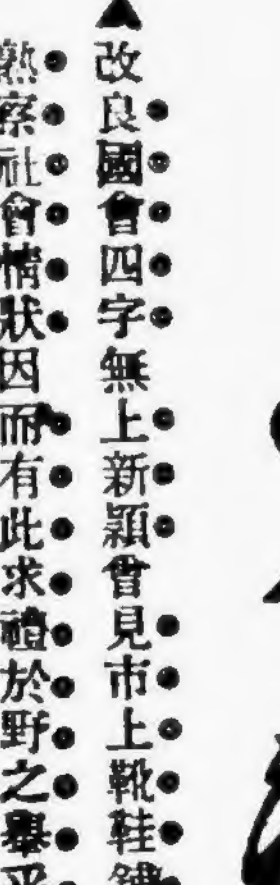 ▲改良國會四字無上新穎嘗見市上靴鞋鋪
熟察社會情狀因而有此求禮於野之舉乎